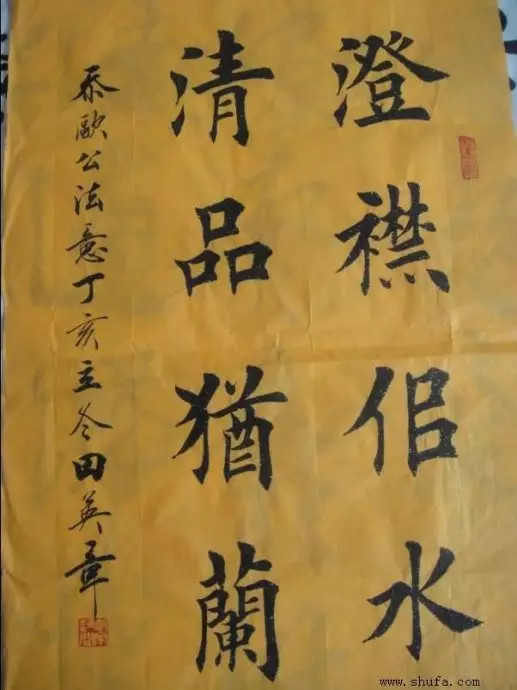 澄襟佀水
清品猶蘭
歐公法意丁亥立冬田英章
www.shufa.com